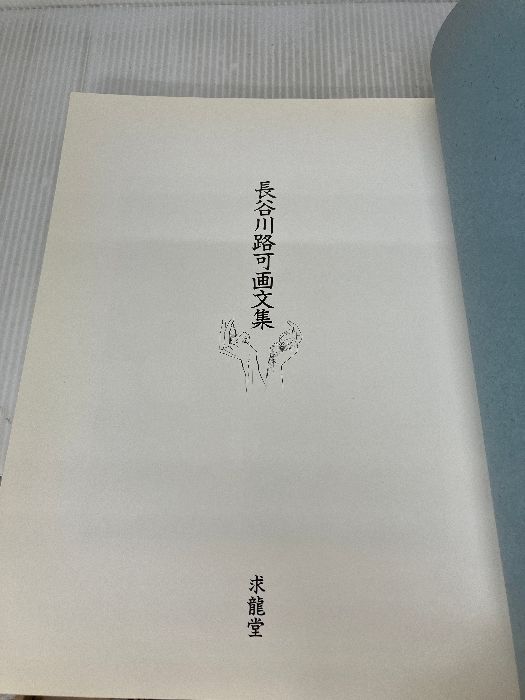 長谷川路可画文集
求龍堂